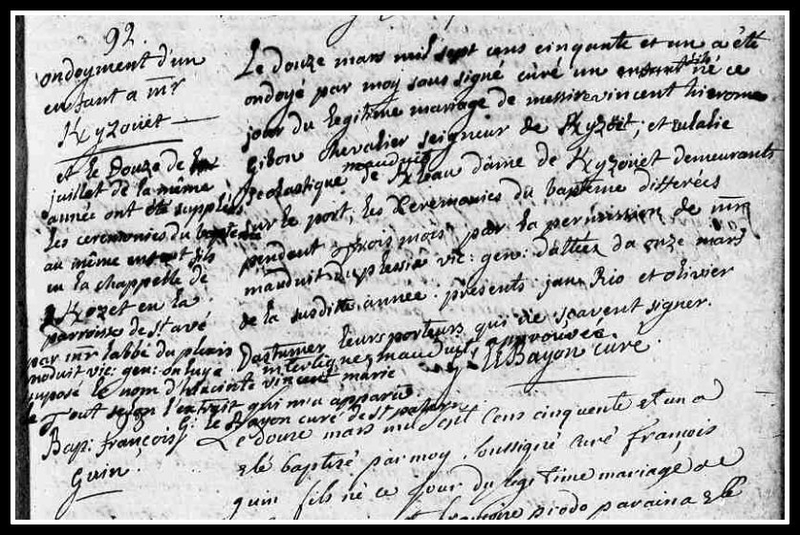 92.
ondoyment d'un
enfant a mr
Kyzouet
et le Douze de
juillet de la même
année ont été supplées
les ceremonies du bapteme
au même enfant fils
en la chappelle de
Kyzozet en la
parroisse de st avé
par mr labbé du plessis
mauduit vic: gen: on luy a
imposé le nom d'hiacinte vincent marie
le Tout selon l'extrait qui m'a apparu
G: le Bayon curé de st patern
Le douze mars mil sept cens cinquante et un a été
ondoyé par moy sous signé curé un enfant fils né ce
jour du legitime mariage de messire vincent hierome
Gibon chevalier seigneur de Kyzoüet; et eulalie
scolastique mauduit de K dame de Kyzoüet demeurants
sur le port, les Ceremonies du bapteme differées
pendant trois mois par la permission de mr
mauduit du plessix vic: gen: dattée du onze mars
de la susditte année. presents jan Rio et olivier
Dastumer leurs porteurs qui ne sçavent signer.
interligne mauduit approuvée
G: le Bayon curé
93
Bap: françois
Guin.
Le douze mars mil sept cens cinquente et un a
eté baptizé par moy soussigné curé françois
guin fils né ce jour du legitime mariage de
piodo paraina